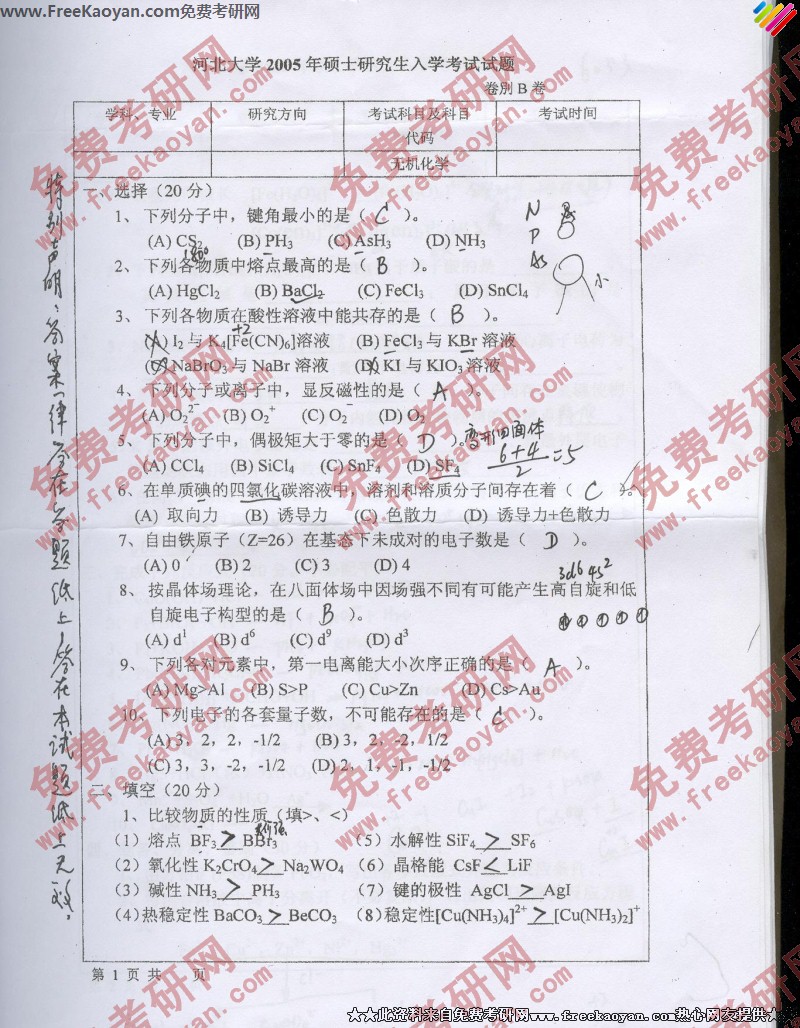 www.FreeKaoyan.com免费考研网
河北大学 2005 年硕士研究生入学考试试题
卷别 B 卷
学科、专业 研究方向 考试科目及科目代码 考试时间
无机化学
特别声明：答案一律答在答题纸上，答在本试题纸上无效。
一、选择（20 分）
1、下列分子中，键角最小的是（ C ）。
(A) CS2 (B) PH3 (C) AsH3 (D) NH3
180°
N
P
As
小
2、下列各物质中熔点最高的是（ B ）。
(A) HgCl2 (B) BaCl2 (C) FeCl3 (D) SnCl4
3、下列各物质在酸性溶液中能共存的是（ B ）。
+2
(A) I2 与 K4[Fe(CN)6]溶液 (B) FeCl3 与 KBr 溶液
(C) NaBrO3 与 NaBr 溶液 (D) KI 与 KIO3 溶液
4、下列分子或离子中，显反磁性的是（ A ）。
(A) O2^2- (B) O2^+ (C) O2^- (D) O2
5、下列分子中，偶极矩大于零的是（ D ）。变形四面体
(A) CCl4 (B) SiCl4 (C) SnF4 (D) SF4
6+4/2=5
6、在单质碘的四氯化碳溶液中，溶剂和溶质分子间存在着（ C ）。
(A) 取向力 (B) 诱导力 (C) 色散力 (D) 诱导力+色散力
7、自由铁原子（Z=26）在基态下未成对的电子数是（ D ）。
(A) 0 (B) 2 (C) 3 (D) 4
3d6 4s2
8、按晶体场理论，在八面体场中因场强不同有可能产生高自旋和低
自旋电子构型的是（ B ）。
(A) d^1 (B) d^6 (C) d^9 (D) d^3
9、下列各对元素中，第一电离能大小次序正确的是（ A ）。
(A) Mg>Al (B) S>P (C) Cu>Zn (D) Cs>Au
10、下列电子的各套量子数，不可能存在的是（ C ）。
(A) 3，2，2，-1/2 (B) 3，2，-2，1/2
(C) 3，3，-2，-1/2 (D) 2，1，-1，-1/2
二、填空（20 分）
1、比较物质的性质（填>、<）
(1) 熔点 BF3 > BBr3 (5) 水解性 SiF4 > SF6
(2) 氧化性 K2CrO4 > Na2WO4 (6) 晶格能 CsF < LiF
(3) 碱性 NH3 > PH3 (7) 键的极性 AgCl > AgI
(4)热稳定性 BaCO3 > BeCO3 (8)稳定性[Cu(NH3)4]^2+ > [Cu(NH3)2]^+
第 1 页 共 页
免费考研网
www.freekaoyan.com
★★此资料来自免费考研网www.freekaoyan.com热心网友提供